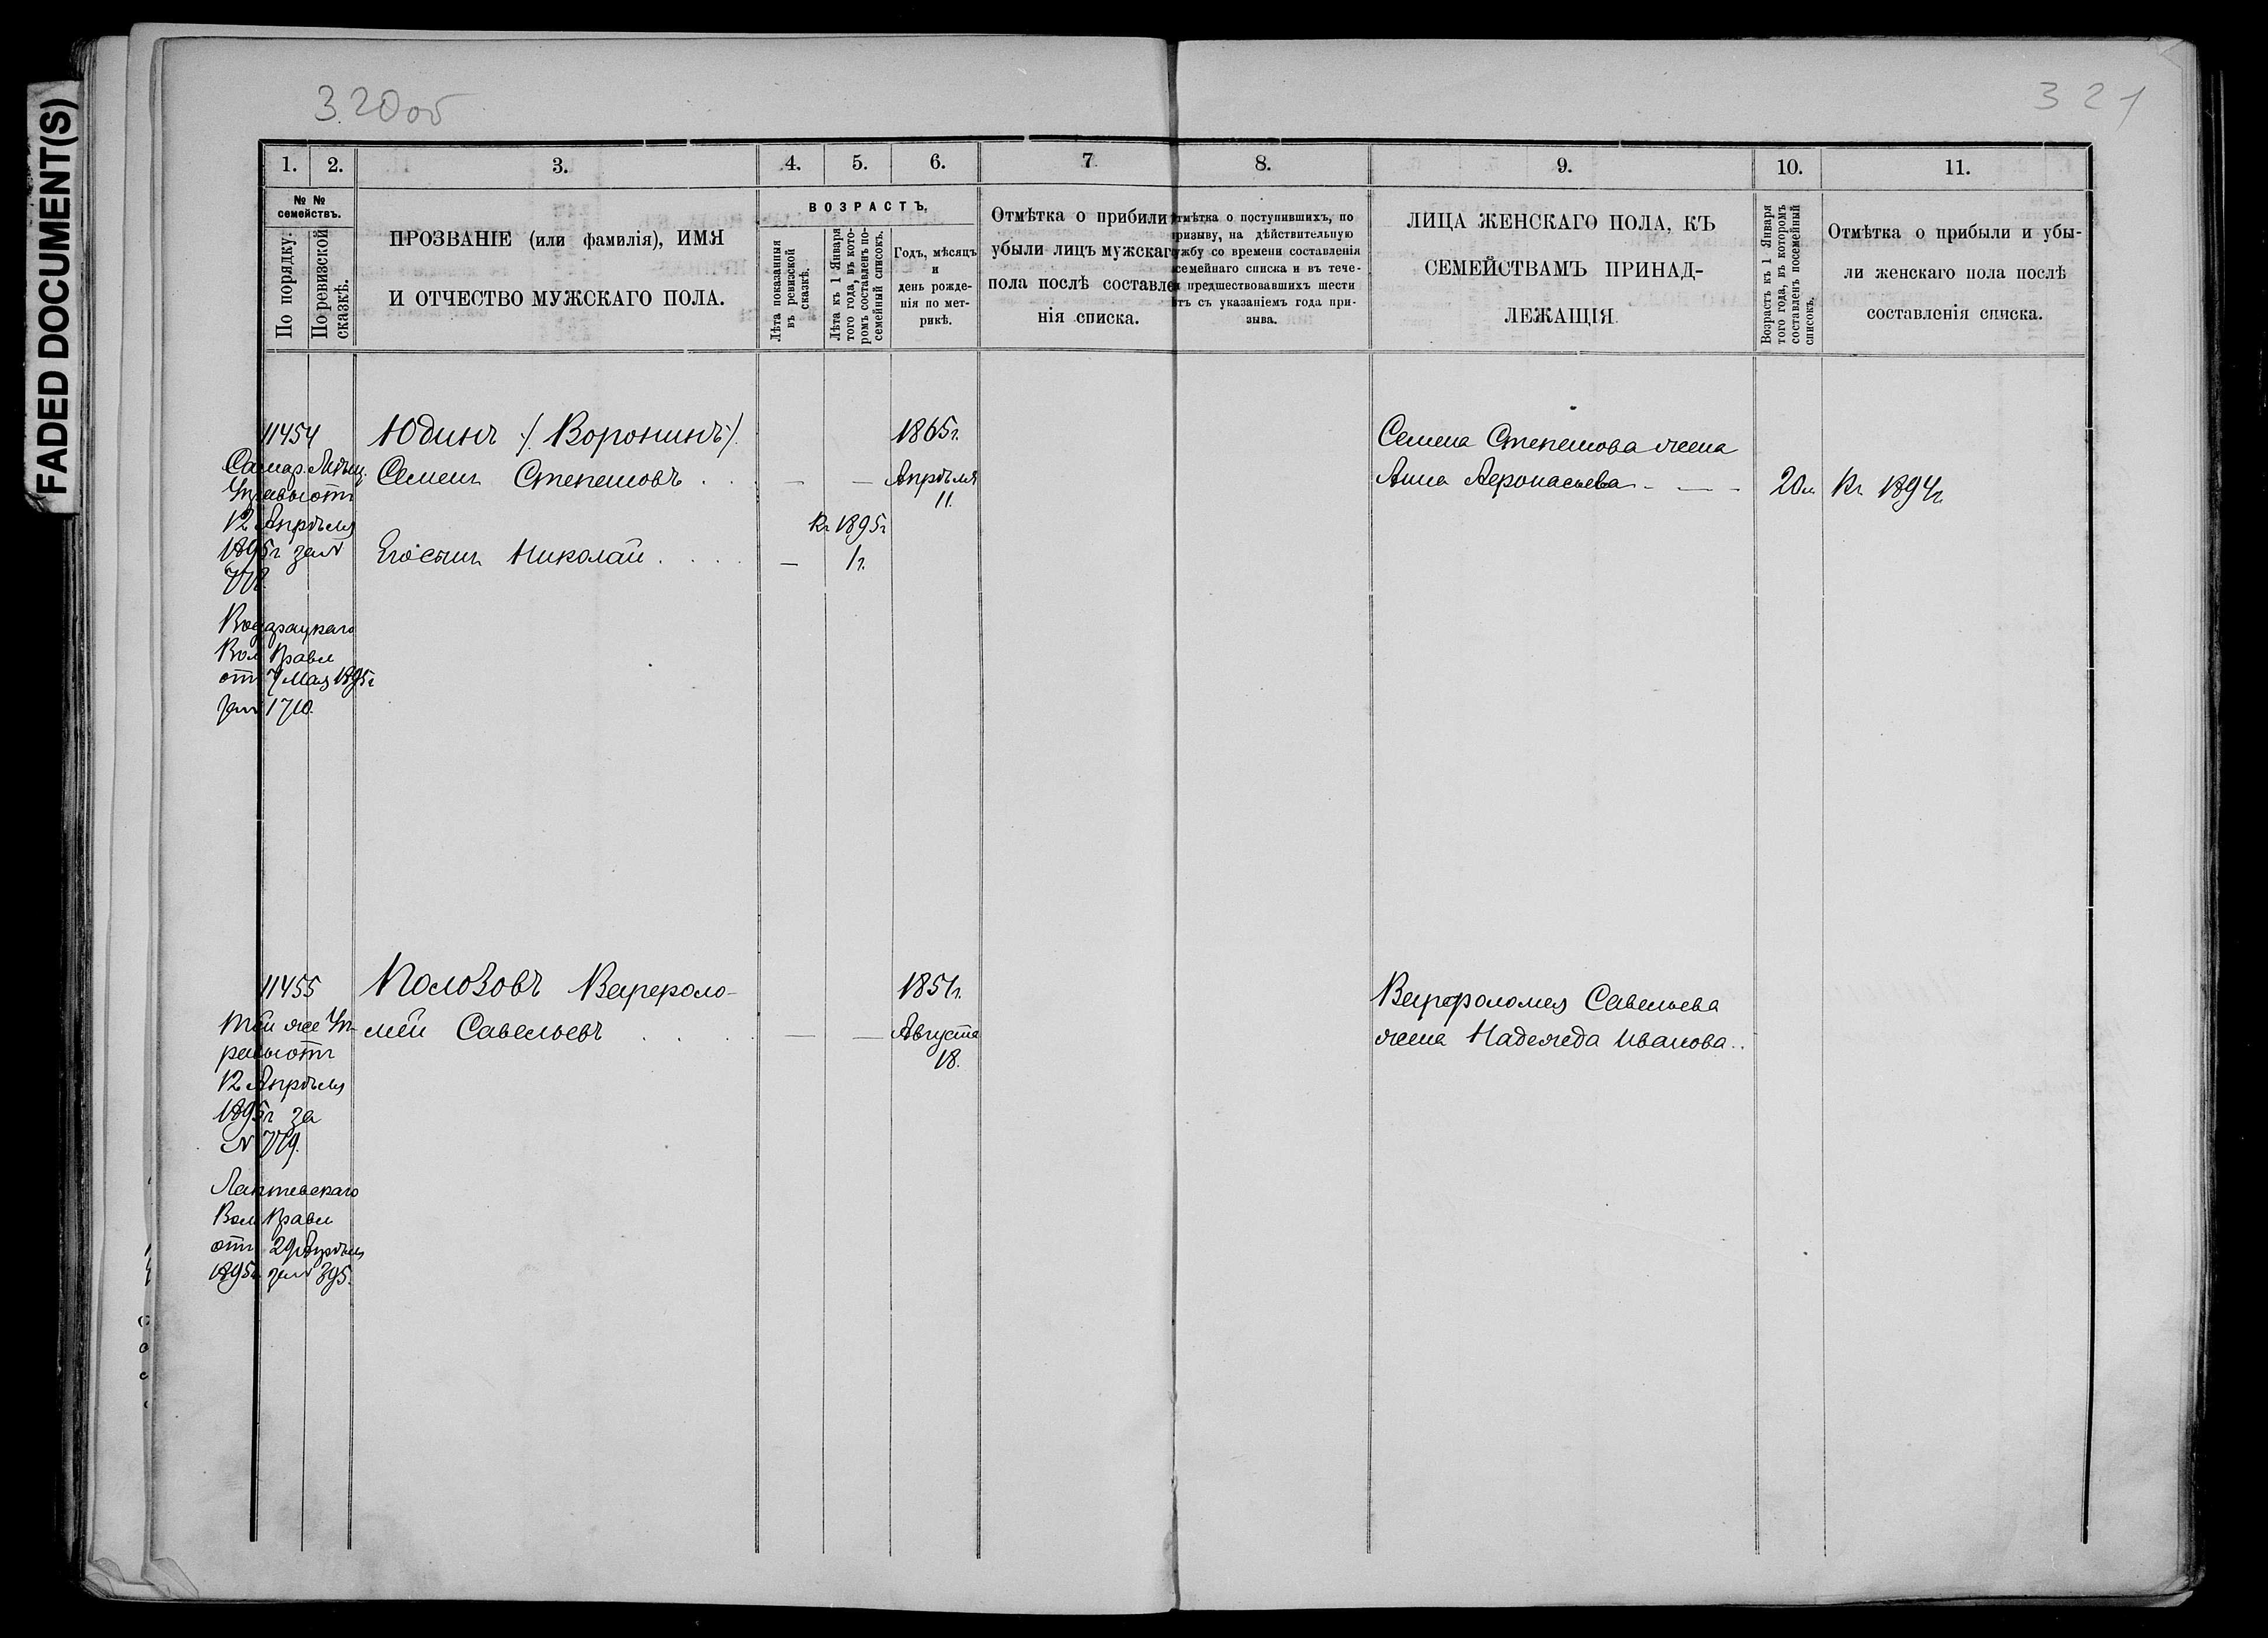 FADED DOCUMENT(S)
320об
321
1.
2.
3.
4.
5.
6.
7.
8.
9.
10.
11.
№ №
семействъ.
По порядку.
По ревизской
сказкѣ.
ПРОЗВАНІЕ (или фамилія), ИМЯ
И ОТЧЕСТВО МУЖСКАГО ПОЛА.
ВОЗРАСТЪ.
Лѣта показанія
въ ревизской
сказкѣ.
Лѣта къ 1 Января
того года, въ кото-
ромъ составленъ по-
семейный списокъ.
Годъ, мѣсяцъ
и
день рожде-
нія по мет-
рикѣ.
Отмѣтка о прибыли
убыли лицъ мужскаг
пола послѣ составле
нія списка.
тмѣтка о поступившихъ, по
призыву, на дѣйствительную
ужбу со времени составленія
семейнаго списка и въ тече-
и предшествовавшихъ шести
ѣтъ съ указаніемъ года при-
зыва.
ЛИЦА ЖЕНСКАГО ПОЛА, КЪ
СЕМЕЙСТВАМЪ ПРИНАД-
ЛЕЖАЩІЯ.
Возрастъ къ 1 Января
того года, въ которомъ
составленъ посемейный
списокъ.
Отмѣтка о прибыли и убы-
ли женскаго пола послѣ
составленія списка.
11454
Самар. Мѣщ.
Управы отъ
12 Апрѣля
1895г за №
778.
Вол Правл
от 7 Мая 1895г
за № 1710.
Юдинъ /Воронинъ/.
Семенъ Степановъ . .
Его сынъ Николай . . . .
Къ 1895г
1г.
1865г.
Апрѣля
11.
Семена Степанова жена
Анна Афонасьева
20л
Къ 1894г.
11455
Той же Уп-
равы отъ
12 Апрѣля
1895г за
№ 779.
Лаптевскаго
Вол Правл
отъ 29 Апрѣля
1895г за № 395.
Полозовъ Варфоло-
мей Савельевъ . . .
1851г.
Августа
18.
Варфоломея Савельева
жена Надежда Иванова..